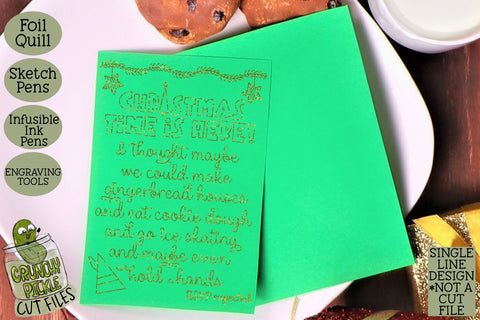 Foil
Quill
Sketch
Pens
Infusible
Ink
Pens
ENGRAVING
TOOLS
CRUNCHY
PICKLE
CUT FILES
CHRISTMAS
TIME IS HERE!
I thought maybe
we could make
gingerbread houses
and eat cookie dough
and go ice skating
and maybe even
hold hands
SINGLE
LINE
DESIGN
*NOT A
CUT
FILE